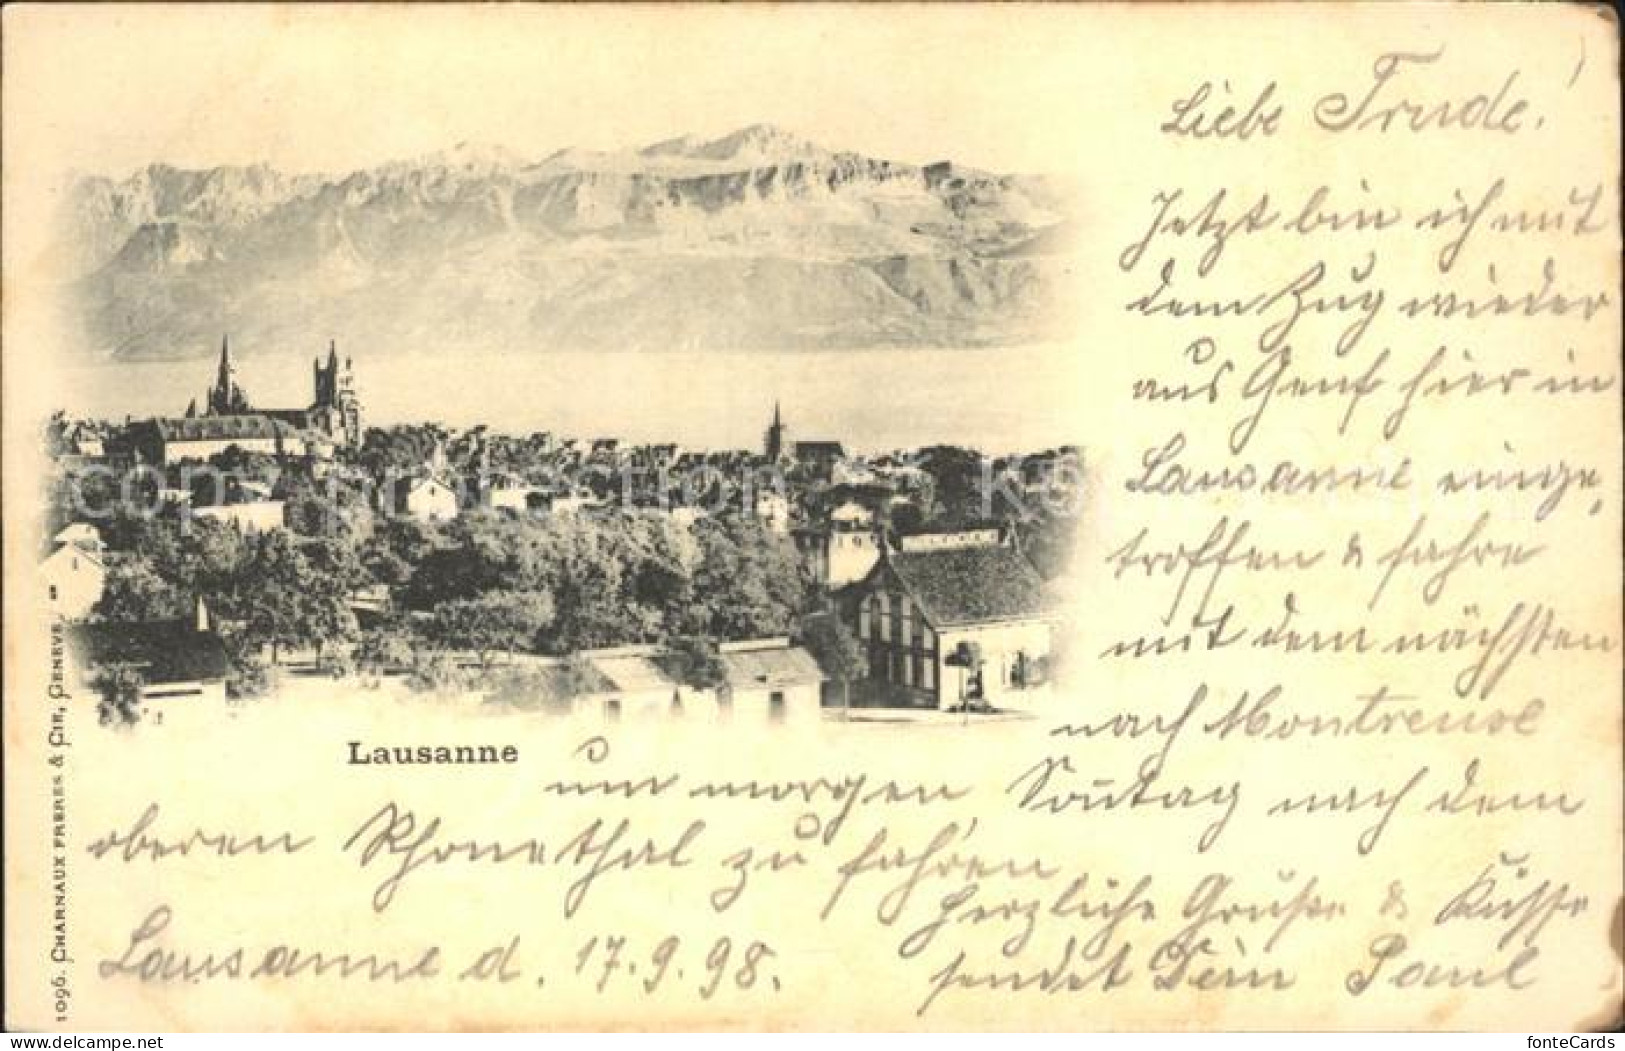 Liebe Trude!
Jetzt bin ich mit
dem Zug wieder
aus Genf hier in
Lausanne einge-
troffen & fahre
mit dem nächsten
nach Montreuse
um morgen, Sontag nach dem
oberen Rhonethal zu fahren
Herzliche Grüße & Küsse
sendet Dein Paul
Lausanne d. 17.9.98.
Lausanne
1096. CHARNAUX FRERES & CIE, GENEVE
copy protection
www.delcampe.net
fonteCards